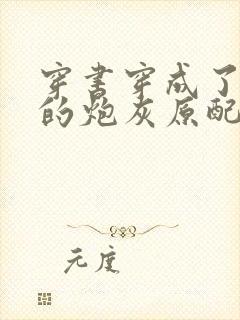 穿书穿成了
的炮灰原配
元度